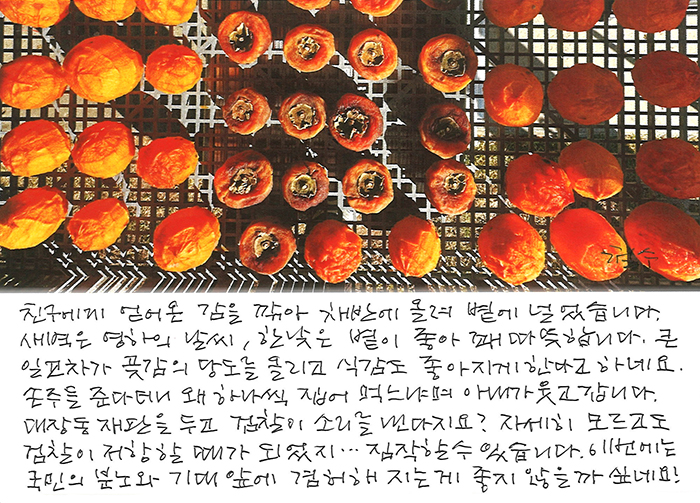 친구에게 얻어온 감을 깎아 채반에 올려 볕에 널었습니다.
새벽은 영하의 날씨, 한낮은 볕이 좋아 꽤 따뜻합니다. 큰
일교차가 곶감의 당도를 올리고 식감도 좋아지게 한다고 하네요.
손주들 준다더니 왜 하나씩 집어 먹느냐며 아내가 웃고 갑니다.
대장동 재판을 두고 검찰이 소리를 낸다지요? 자세히 모르고도
검찰이 저항할 때가 되었지… 짐작할 수 있습니다. 이번에는
국민의 분노와 기대 앞에 겸허해 지는게 좋지 않을까 싶네요!